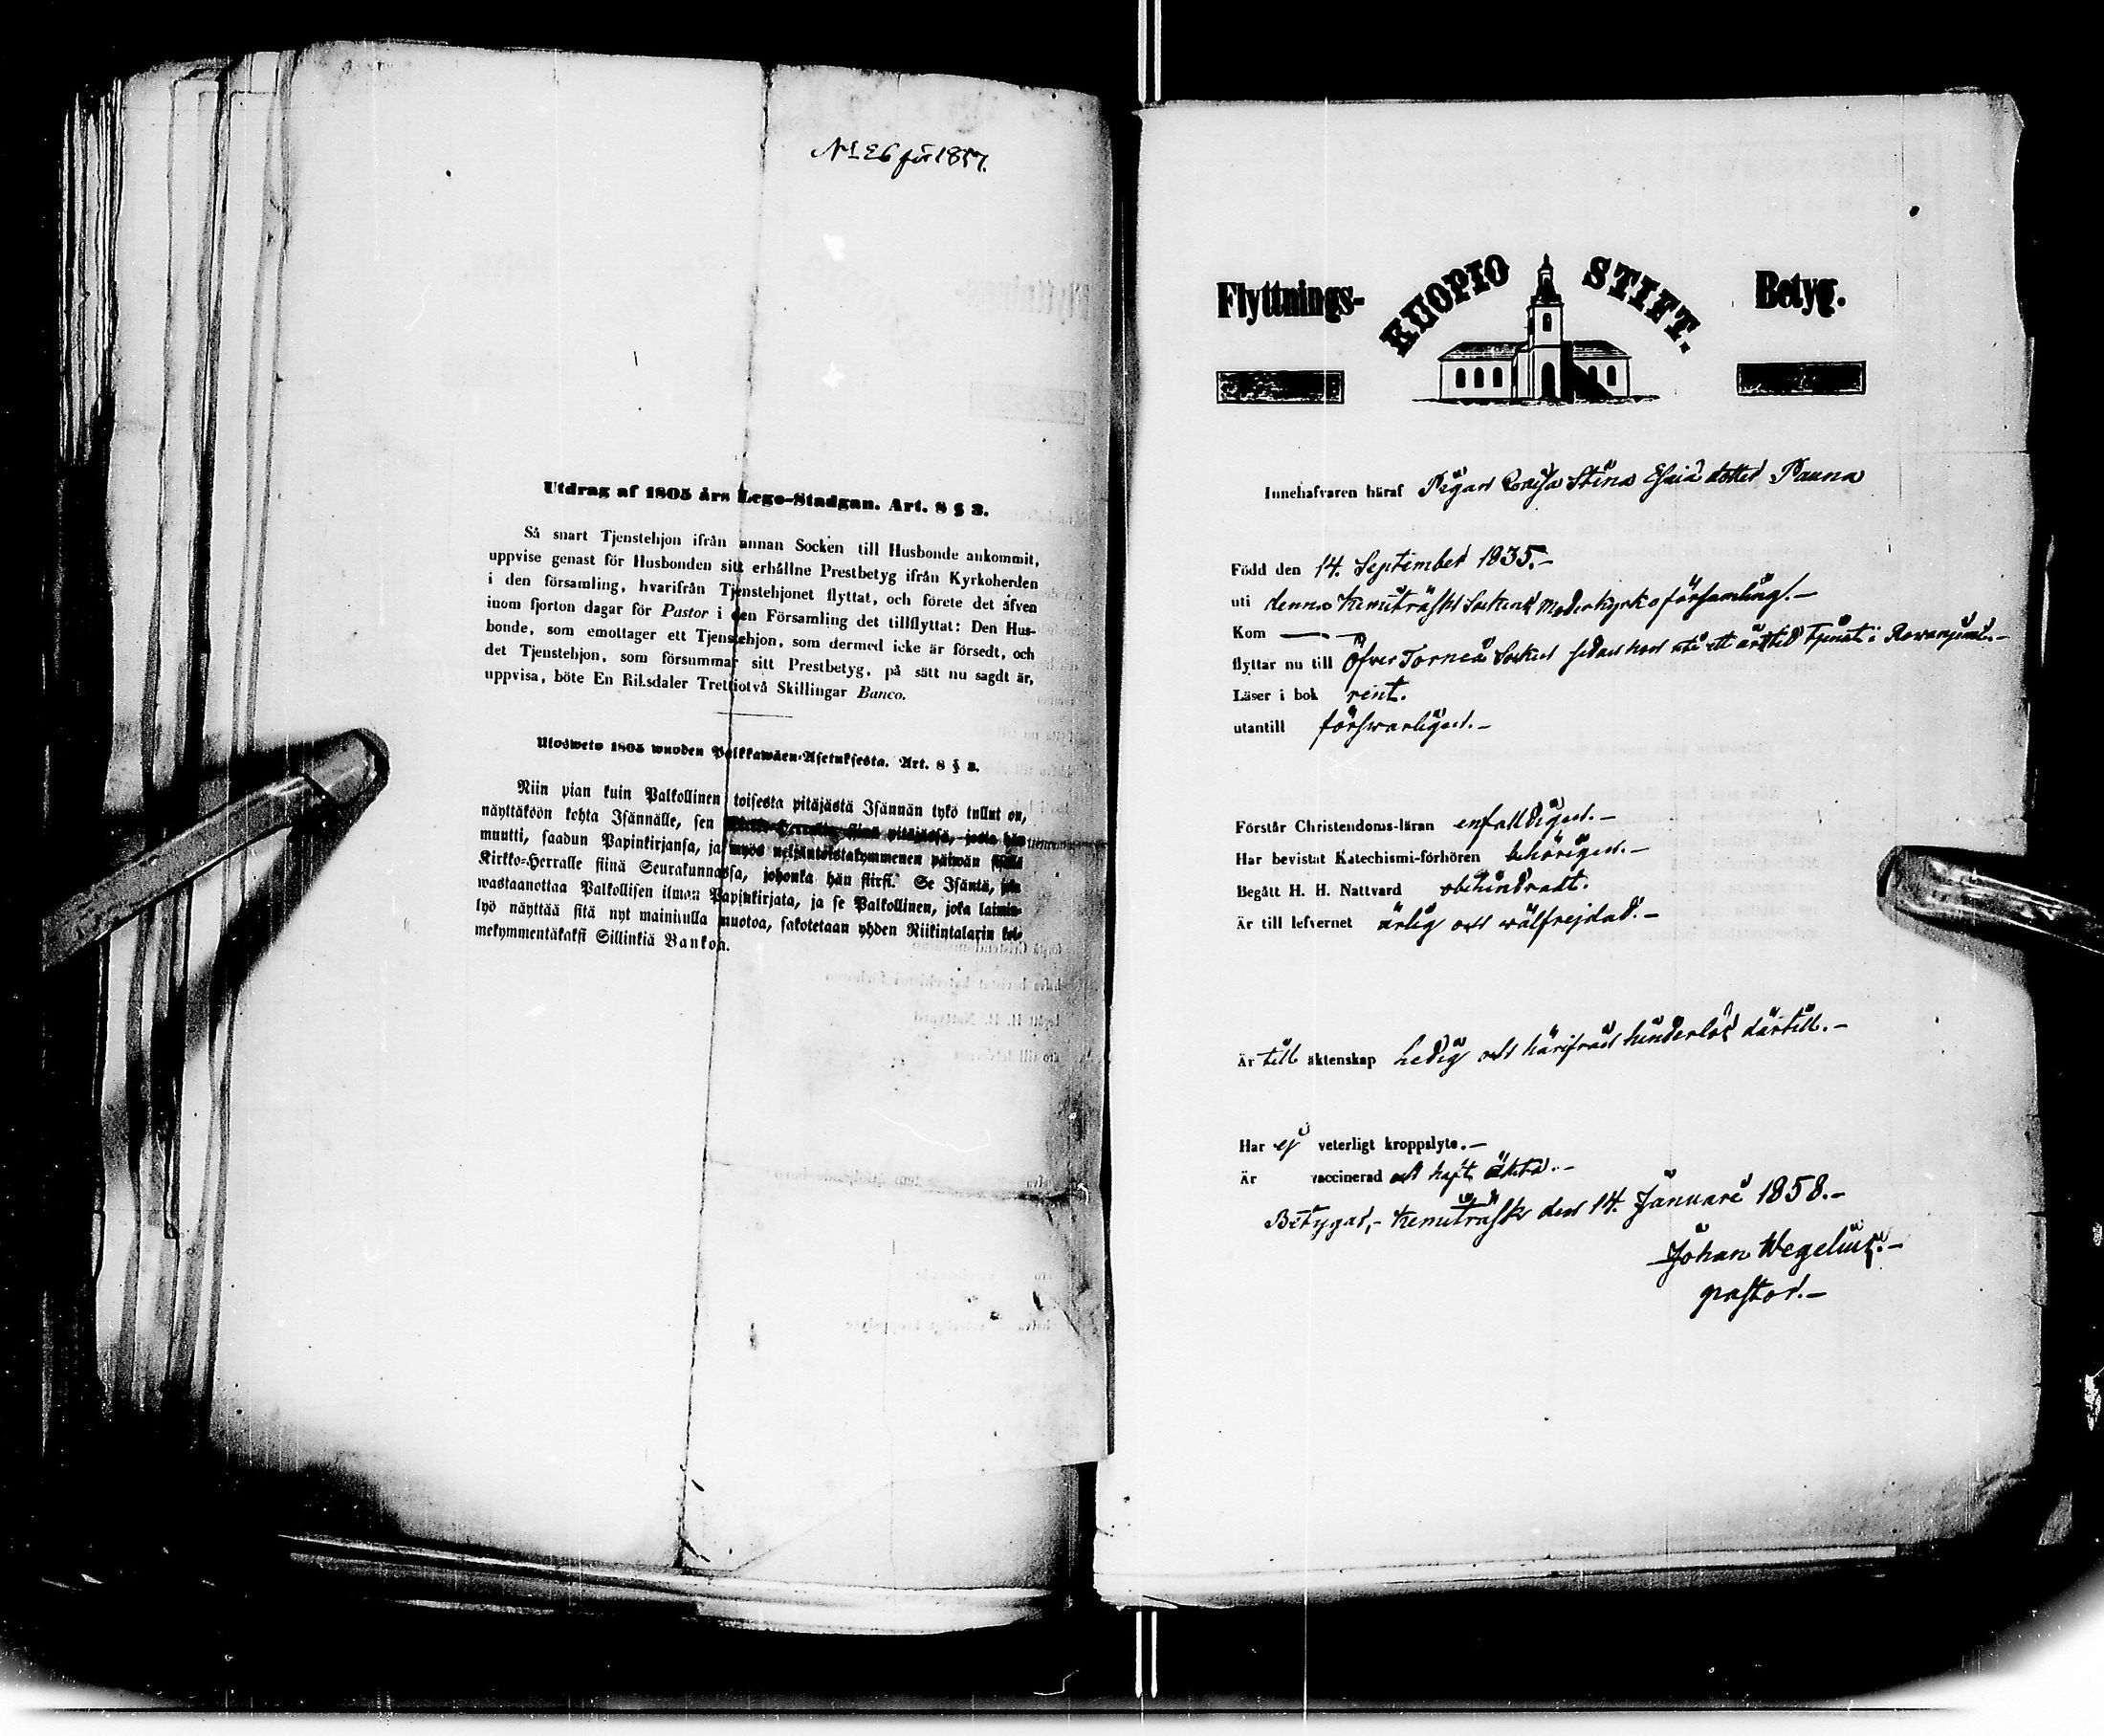 No 26 för 1857.
Utdrag af 1805 års Lego-Stadgan. Art. 8 § 3.
Så snart Tjenstehjon ifrån annan Socken till Husbonde ankommit,
uppvise genast för Husbonden sitt erhållne Prestbetyg ifrån Kyrkoherden
i den församling, hvarifrån Tjenstehjonet flyttat, och förete det äfven
inom fjorton dagar för Pastor i den Församling det tillflyttat: Den Hus-
bonde, som emottager ett Tjenstehjon, som dermed icke är försedt, och
det Tjenstehjon, som försummar sitt Prestbetyg, på sätt nu sagdt är,
uppvisa, böte En Riksdaler Trettiotvå Skillingar Banco.
Ulosweto 1805 wuoden Palkkawäen-Asetuksesta. Art. 8 § 3.
Niin pian kuin Palkollinen toisesta pitäjästä Isännän tykö tullut on,
näyttäköön kohta Isännälle, sen Kirkko-Herralta siinä pitäjässä, josta hän
muutti, saadun Papinkirjansa, ja myös neljäntoistakymmenen päiwän sisällä
Kirkko-Herralle siinä Seurakunnassa, johonka hän siirsi. Se Isäntä, joka
wastaanottaa Palkollisen ilman Papinkirjata, ja se Palkollinen, joka laimin-
lyö näyttää sitä nyt mainitulla muotoa, sakotetaan yhden Riikintalarin kol-
mekymmentäkaksi Sillinkiä Bankoa.
Flyttnings- KUOPIO STIFT. Betyg.
Innehafvaren häraf Pigan Lovisa Stina Esaiæ dotter Pauna
Född den 14. September 1835.-
uti denna Kemiträsk Sockens Moderkyrko församling.-
Kom —
flyttar nu till Öfver Torneå Socken sedan hon ett års tid tjenat i Rowaniemi.-
Läser i bok rent.
utantill försvarligen.-
Förstår Christendoms-läran enfaldigen.-
Har bevistat Katechismi-förhören behörigen.-
Begått H. H. Nattvard obehindradt.
Är till lefvernet ärlig och wälfrejdad.-
Är till äktenskap ledig och härifrån hinderlös därtill.-
Har ej veterligt kroppslyte.-
Är vaccinerad och haft äkta.-
Betygar,- Kemiträsk den 14. Januari 1858.-
Johan Wegelius.-
pastor.-